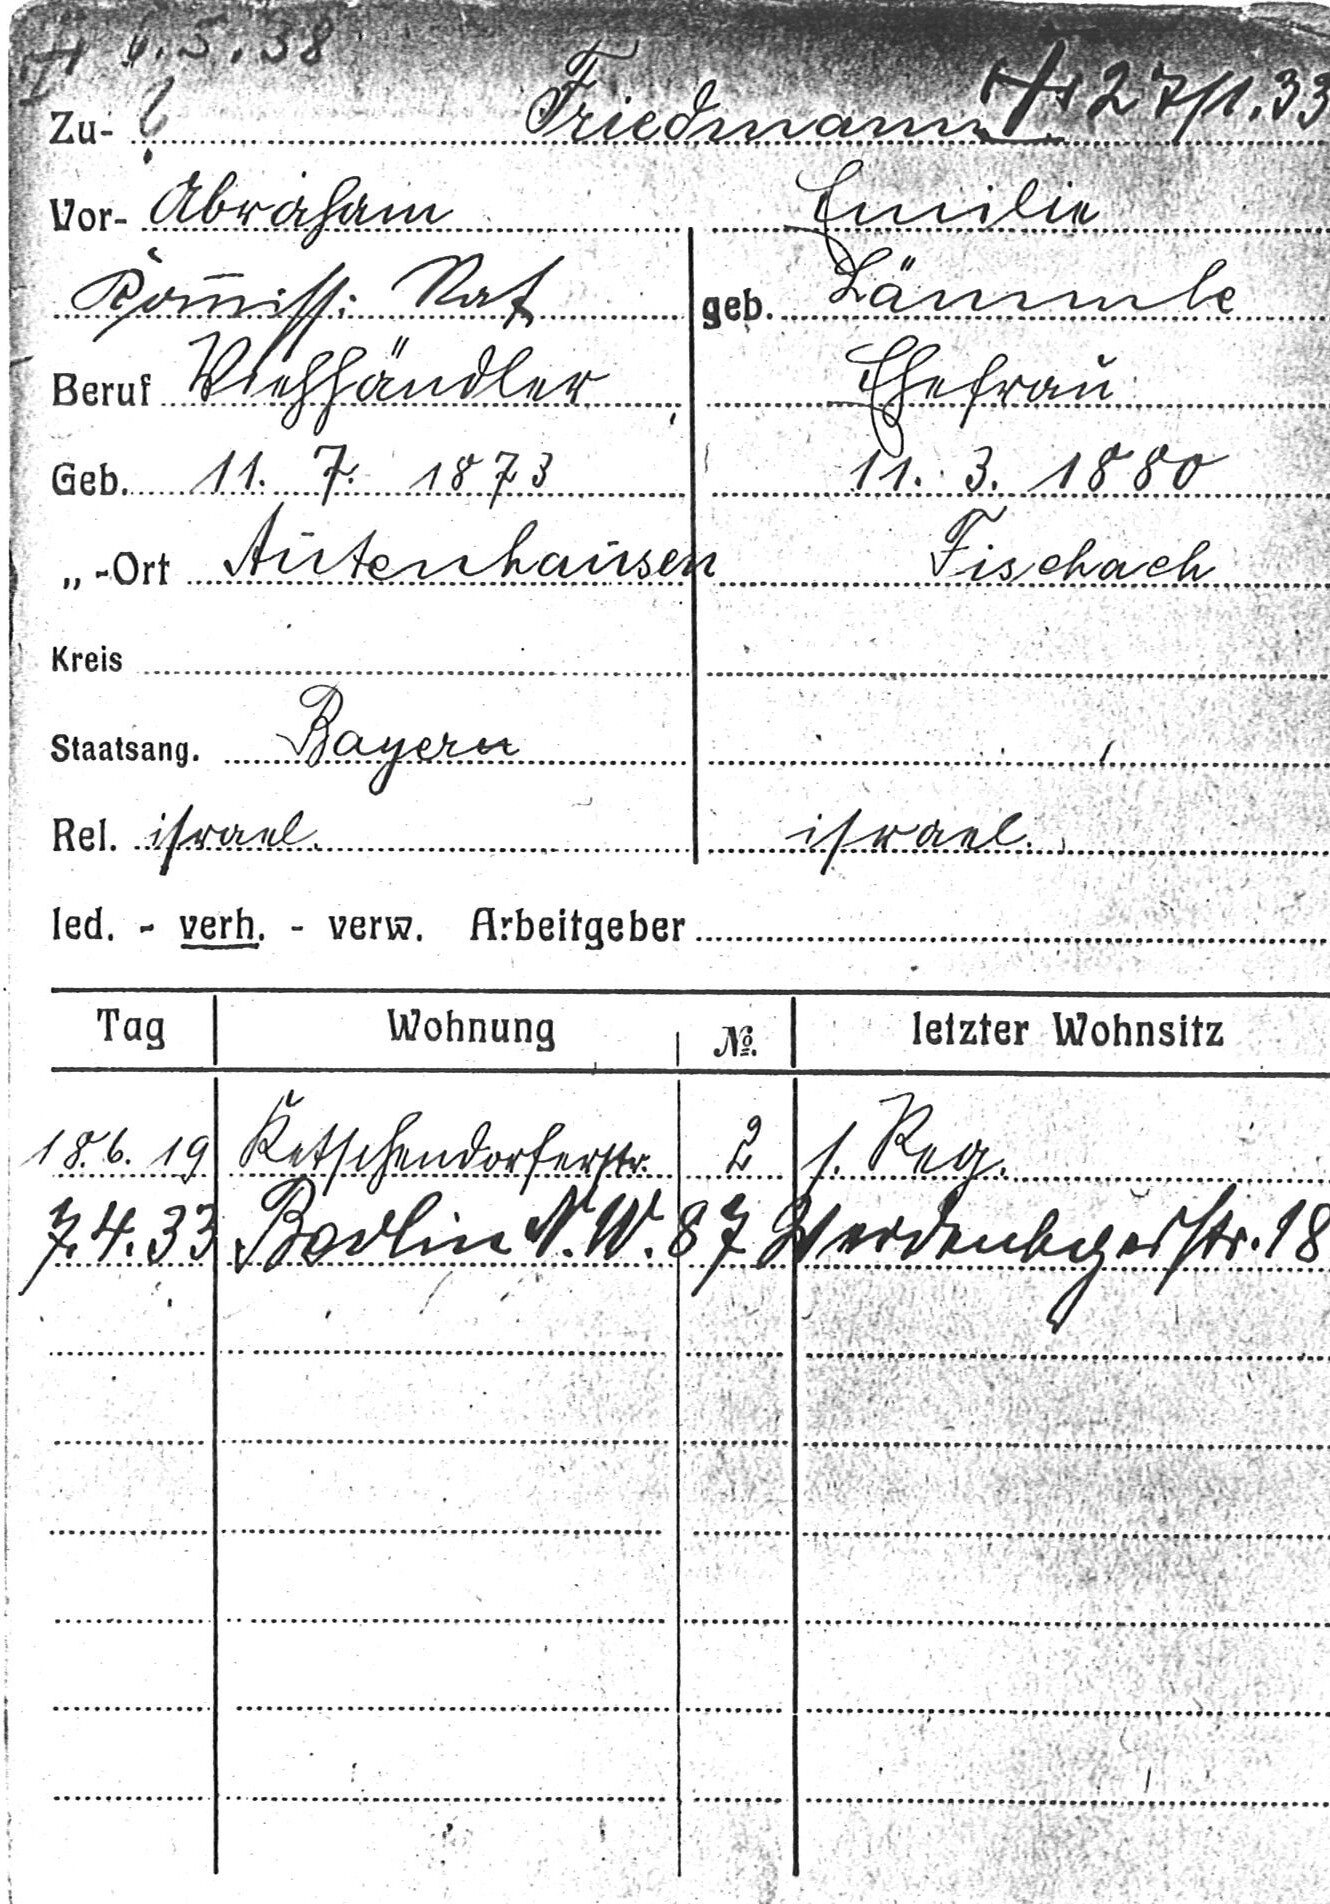 6.5.38
Zu- Friedmann 27/1.33
Vor- Abraham Emilie
Kommiss. Rat geb. Lämmle
Beruf Viehhändler Ehefrau
Geb. 11. 7. 1873 11. 3. 1880
„ -Ort Autenhausen Fischach
Kreis
Staatsang. Bayern
Rel. israel. israel.
led. - verh. - verw. Arbeitgeber
Tag Wohnung №. letzter Wohnsitz
18.6.19 Ketschendorferstr. 2 s. Reg.
7.4.33 Berlin N.W. 87 str. 18